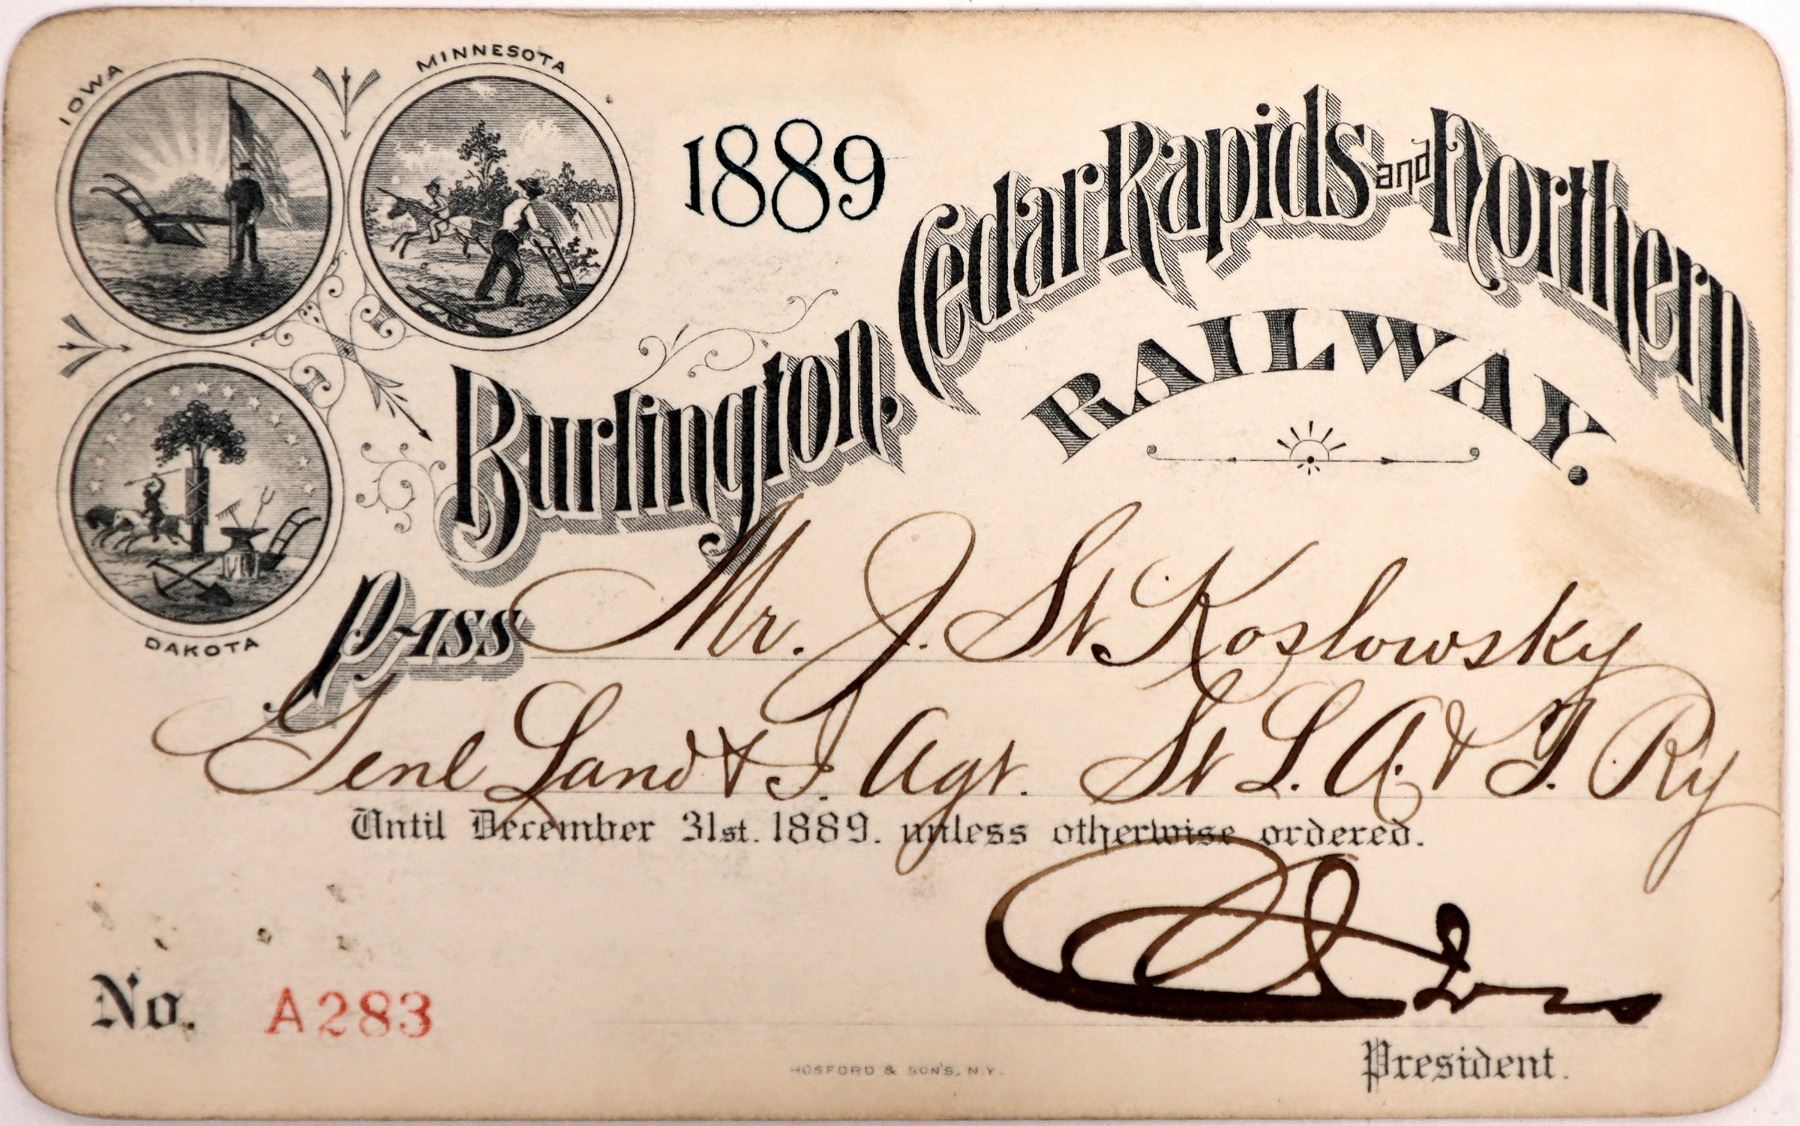 IOWA
MINNESOTA
DAKOTA
1889
Burlington, Cedar Rapids and Northern
RAILWAY.
PASS Mr. J. St. Koslowsky
Genl Land & I. Agt. St L. A. & T. Ry
Until December 31st. 1889. unless otherwise ordered.
No. A283
President.
HOSFORD & SON'S, N.Y.